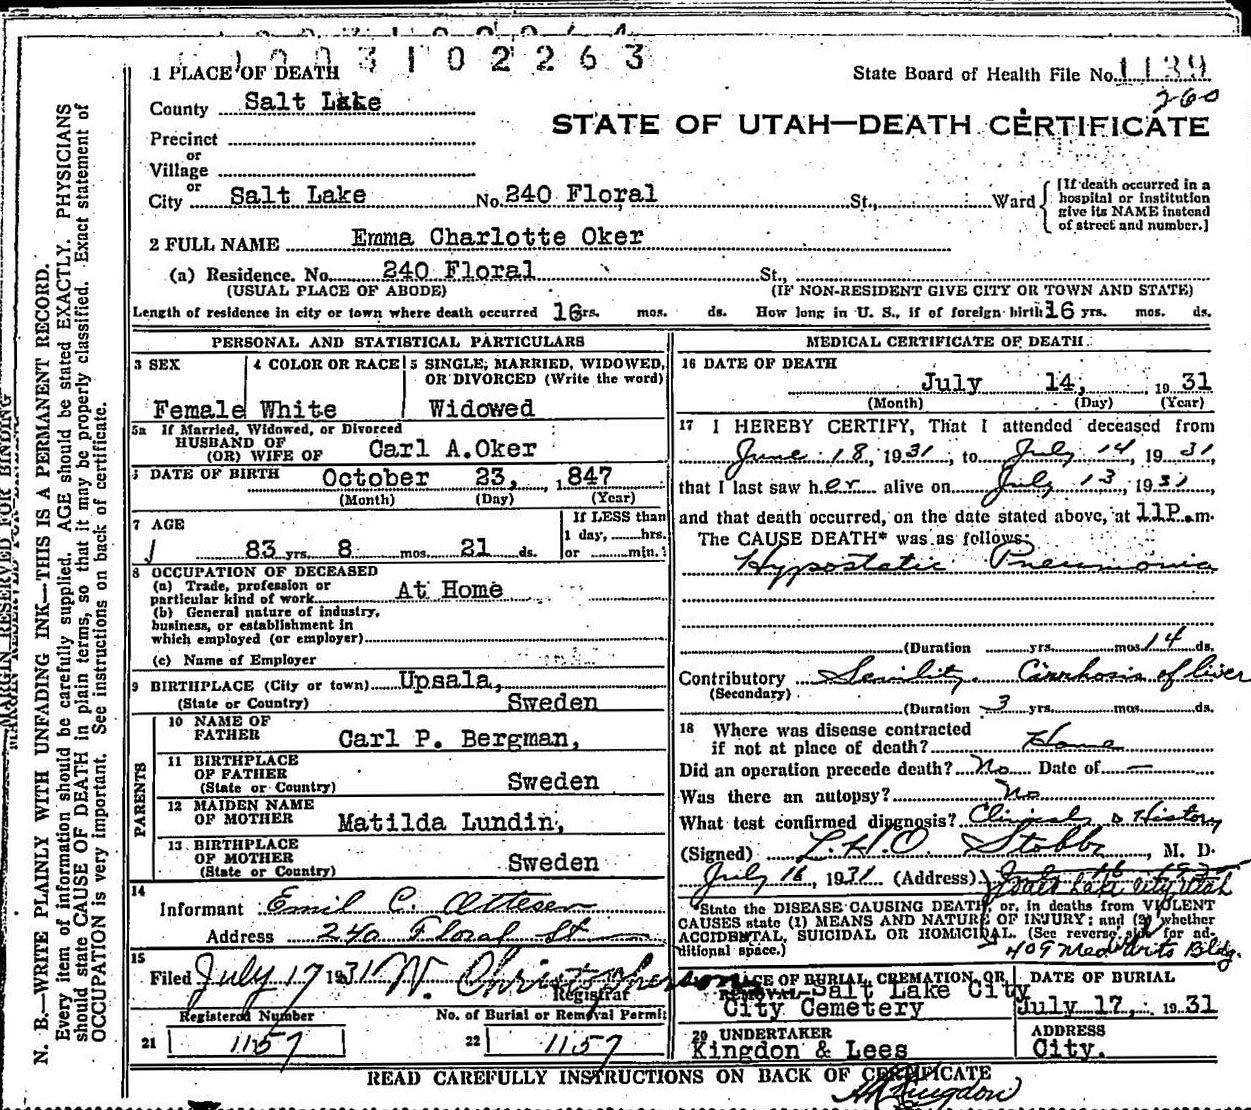 1003102263
1 PLACE OF DEATH
State Board of Health File No. 1139
260
County Salt Lake
STATE OF UTAH—DEATH CERTIFICATE
Precinct
or
Village
or
City Salt Lake No. 240 Floral St., Ward
[If death occurred in a
hospital or institution
give its NAME instead
of street and number.]
2 FULL NAME Emma Charlotte Oker
(a) Residence. No. 240 Floral St.,
(USUAL PLACE OF ABODE) (IF NON-RESIDENT GIVE CITY OR TOWN AND STATE)
Length of residence in city or town where death occurred 16 yrs. mos. ds. How long in U. S., if of foreign birth 16 yrs. mos. ds.
PERSONAL AND STATISTICAL PARTICULARS
3 SEX
Female
4 COLOR OR RACE
White
5 SINGLE, MARRIED, WIDOWED,
OR DIVORCED (Write the word)
Widowed
5a If Married, Widowed, or Divorced
HUSBAND OF
(OR) WIFE OF Carl A.Oker
DATE OF BIRTH October 23, 1847
(Month) (Day) (Year)
7 AGE
83 yrs. 8 mos. 21 ds.
If LESS than
1 day, hrs.
or min.
8 OCCUPATION OF DECEASED
(a) Trade, profession or
particular kind of work At Home
(b) General nature of industry,
business, or establishment in
which employed (or employer)
(c) Name of Employer
9 BIRTHPLACE (City or town) Upsala,
(State or Country) Sweden
PARENTS
10 NAME OF
FATHER Carl P. Bergman,
11 BIRTHPLACE
OF FATHER Sweden
(State or Country)
12 MAIDEN NAME
OF MOTHER Matilda Lundin,
13 BIRTHPLACE
OF MOTHER Sweden
(State or Country)
14
Informant Emil C. Ottesen
Address 240 Floral St
15
Filed July 17 1931 W. Christopherson
Registrar
Registered Number No. of Burial or Removal Permit
21 1157 22 1157
MEDICAL CERTIFICATE OF DEATH
16 DATE OF DEATH
July 14, 1931
(Month) (Day) (Year)
17 I HEREBY CERTIFY, That I attended deceased from
June 18, 1931, to July 14, 1931,
that I last saw her alive on July 13, 1931,
and that death occurred, on the date stated above, at 11P.m.
The CAUSE DEATH* was as follows:
Hypostatic Pneumonia
(Duration yrs. mos. 14 ds.
Contributory Senility. Cirrhosis of liver
(Secondary)
(Duration 3 yrs. mos. ds.
18 Where was disease contracted
if not at place of death? Home
Did an operation precede death? No Date of —
Was there an autopsy? No
What test confirmed diagnosis? Clinical & History
(Signed) L.H.O. Stobbe, M. D.
July 16, 1931 (Address) Salt Lake City Utah
409 Med Arts Bldg.
*State the DISEASE CAUSING DEATH, or, in deaths from VIOLENT
CAUSES state (1) MEANS AND NATURE OF INJURY; and (2) whether
ACCIDENTAL, SUICIDAL OR HOMICIDAL. (See reverse side for ad-
ditional space.)
PLACE OF BURIAL, CREMATION, OR
REMOVAL Salt Lake City
City Cemetery
DATE OF BURIAL
July 17, 1931
20 UNDERTAKER
Kingdon & Lees
ADDRESS
City.
READ CAREFULLY INSTRUCTIONS ON BACK OF CERTIFICATE
MARGIN RESERVED FOR BINDING
N. B.—WRITE PLAINLY WITH UNFADING INK—THIS IS A PERMANENT RECORD.
Every item of information should be carefully supplied. AGE should be stated EXACTLY. PHYSICIANS
should state CAUSE OF DEATH in plain terms, so that it may be properly classified. Exact statement of
OCCUPATION is very important. See instructions on back of certificate.